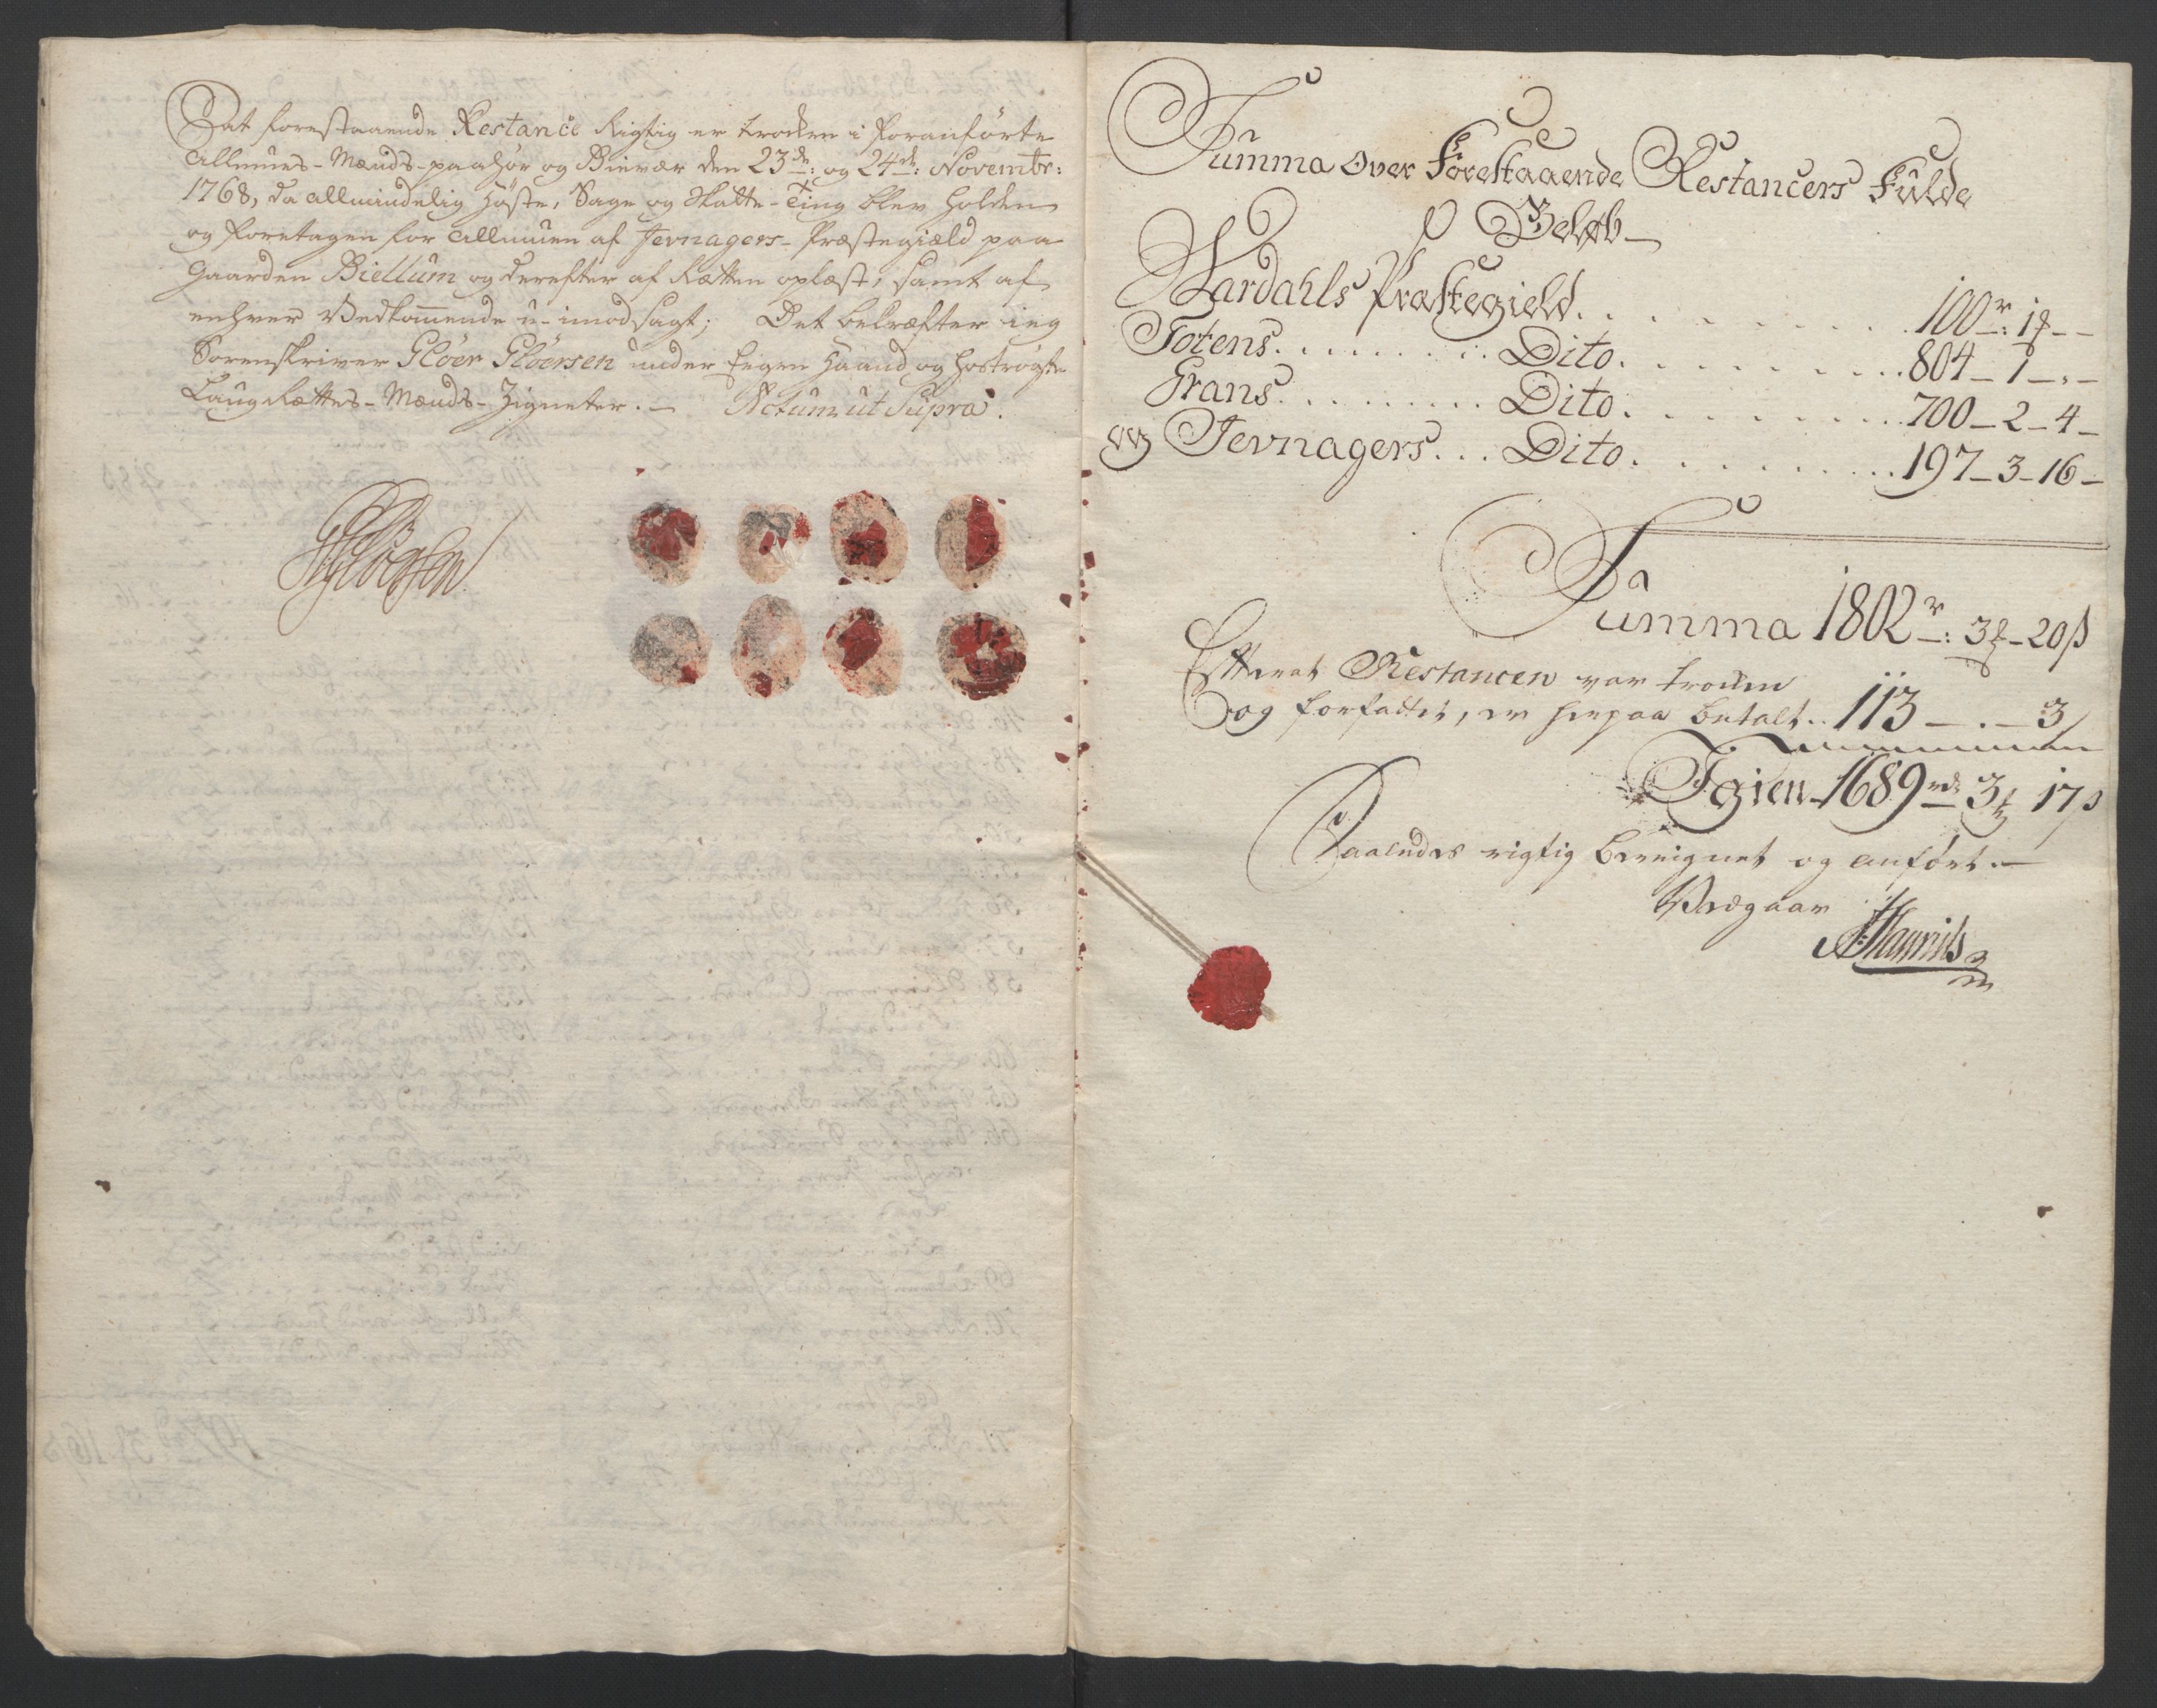 Dat forestaaende Restance Rigtig er trocken i foranførte
Allmues-Mænds-paahør og Bievær den 23de: og 24de: Novembr:
1768, da allmindelig Høste, Sage og Skatte-Ting blev holden
og foretagen for Allmuen af Jevnagers-Præstegiæld paa
Gaarden Biellum og derefter af Rætten oplæst, samt af
enhver Vedkommende u-imodsagt; Det bekræfter ieg
Sorenskriver Glöer Glöersen under Egen Haand og hostrøgte
LaugRættes-Mænds-Zigneter. — Actum ut Supra.
Glöersen
Summa Over Forestaaende Restancers Fulde
Beløb —
Wardahls Præstegield . . . . . . . . . 100r: 1f — —
Totens . . . . . . . . Dito . . . . . . . . 804 — 1 — . —
Grans . . . . . . . . Dito . . . . . . . . 700 — 2 — 4 —
og Jevnagers . . . Dito . . . . . . . . 197 — 3 — 16 —
Summa 1802r: 3f — 20s
Efterat Restancen var trocken
og forfattet, er herpaa betalt .. 113 — . — 3
Igien 1689rd 3f 17s
Saaledes rigtig bereignet og anført. —
Vedgaar